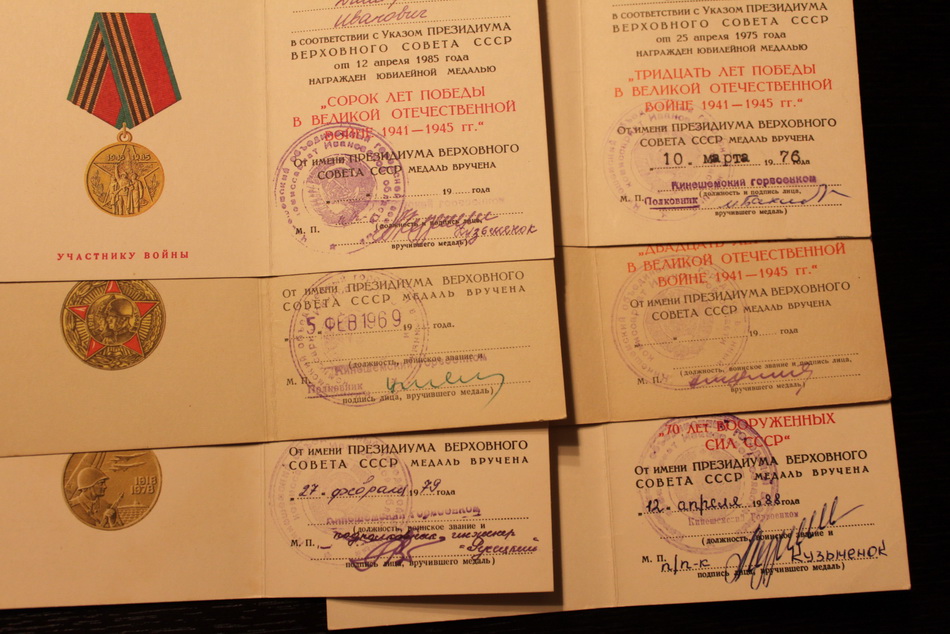 Иванович
В СООТВЕТСТВИИ С УКАЗОМ ПРЕЗИДИУМА
ВЕРХОВНОГО СОВЕТА СССР
от 12 апреля 1985 года
НАГРАЖДЕН ЮБИЛЕЙНОЙ МЕДАЛЬЮ
„СОРОК ЛЕТ ПОБЕДЫ
В ВЕЛИКОЙ ОТЕЧЕСТВЕННОЙ
ВОЙНЕ 1941—1945 гг.“
От имени ПРЕЗИДИУМА ВЕРХОВНОГО
СОВЕТА СССР МЕДАЛЬ ВРУЧЕНА
19 года
М. П.
(должность и подпись лица,
Кузьменок
вручившего медаль)
1945 1985
УЧАСТНИКУ ВОЙНЫ
В СООТВЕТСТВИИ С УКАЗОМ ПРЕЗИДИУМА
ВЕРХОВНОГО СОВЕТА СССР
от 25 апреля 1975 года
НАГРАЖДЕН ЮБИЛЕЙНОЙ МЕДАЛЬЮ
„ТРИДЦАТЬ ЛЕТ ПОБЕДЫ
В ВЕЛИКОЙ ОТЕЧЕСТВЕННОЙ
ВОЙНЕ 1941—1945 гг.“
От имени ПРЕЗИДИУМА ВЕРХОВНОГО
СОВЕТА СССР МЕДАЛЬ ВРУЧЕНА
10 марта 1976
Кинешемский горвоенком
(должность и подпись лица,
М. П. Полковник
вручившего медаль)
От имени ПРЕЗИДИУМА ВЕРХОВНОГО
СОВЕТА СССР МЕДАЛЬ ВРУЧЕНА
5 ФЕВ 1969 19 года.
(должность, воинское звание и
Кинешемский горвоенком
М. П. Полковник
подпись лица, вручившего медаль)
„ДВАДЦАТЬ
В ВЕЛИКОЙ ОТЕЧЕСТВЕННОЙ
ВОЙНЕ 1941—1945 гг.“
От имени ПРЕЗИДИУМА ВЕРХОВНОГО
СОВЕТА СССР МЕДАЛЬ ВРУЧЕНА
19 года
(должность, воинское звание и подпись лица,
М. П.
вручившего медаль)
1918
1978
От имени ПРЕЗИДИУМА ВЕРХОВНОГО
СОВЕТА СССР МЕДАЛЬ ВРУЧЕНА
„27“ февраля 1979 года
Кинешемский горвоенком
(должность, воинское звание и
М. П. подполковник-инженер
подпись лица, вручившего медаль)
"70 ЛЕТ ВООРУЖЕННЫХ
СИЛ СССР"
От имени ПРЕЗИДИУМА ВЕРХОВНОГО
СОВЕТА СССР МЕДАЛЬ ВРУЧЕНА
„12“ апреля 1988 года
Кинешемский Горвоенком
(должность, воинское звание и
М. П. п/п-к Кузьменок
подпись лица, вручившего медаль)